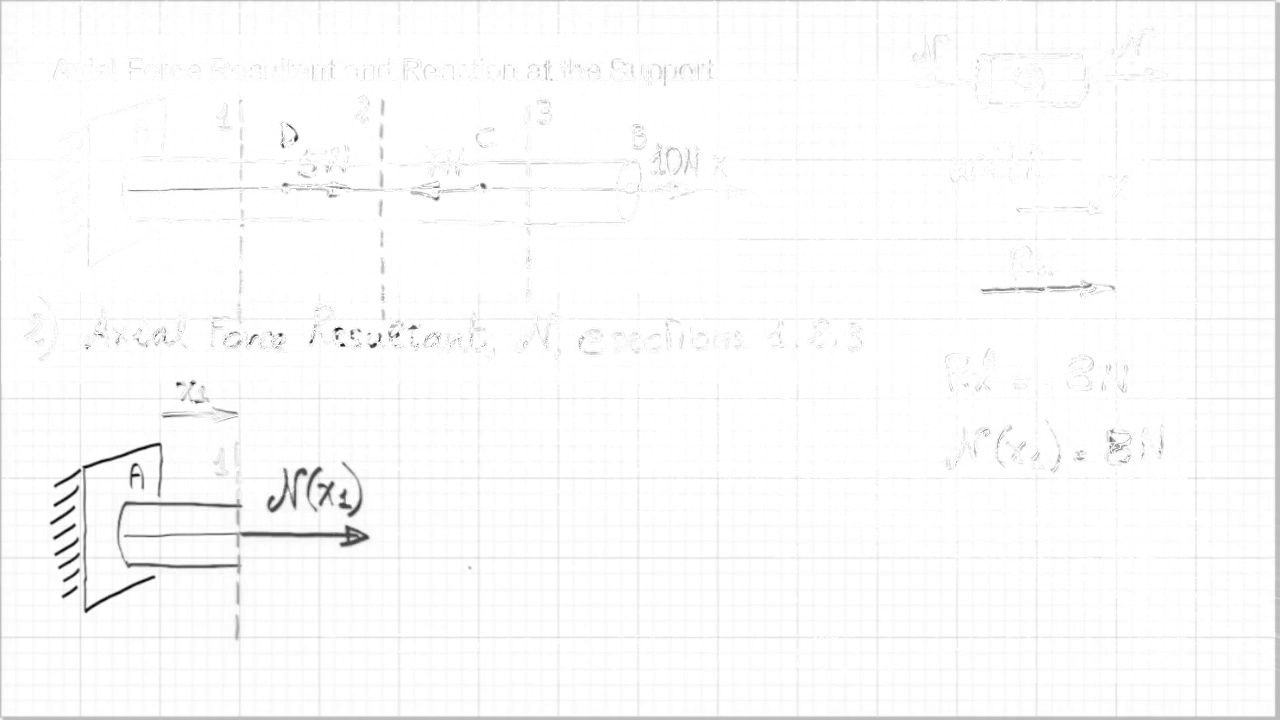 Axial Force Resultant and Reaction at the Support
N N
1 2 3
A D C B
5N 7N 10N x
x
2) Axial Force Resultant, N, @ sections 1.2.3
N(x1) = 8N
x1
1
A N(x1)